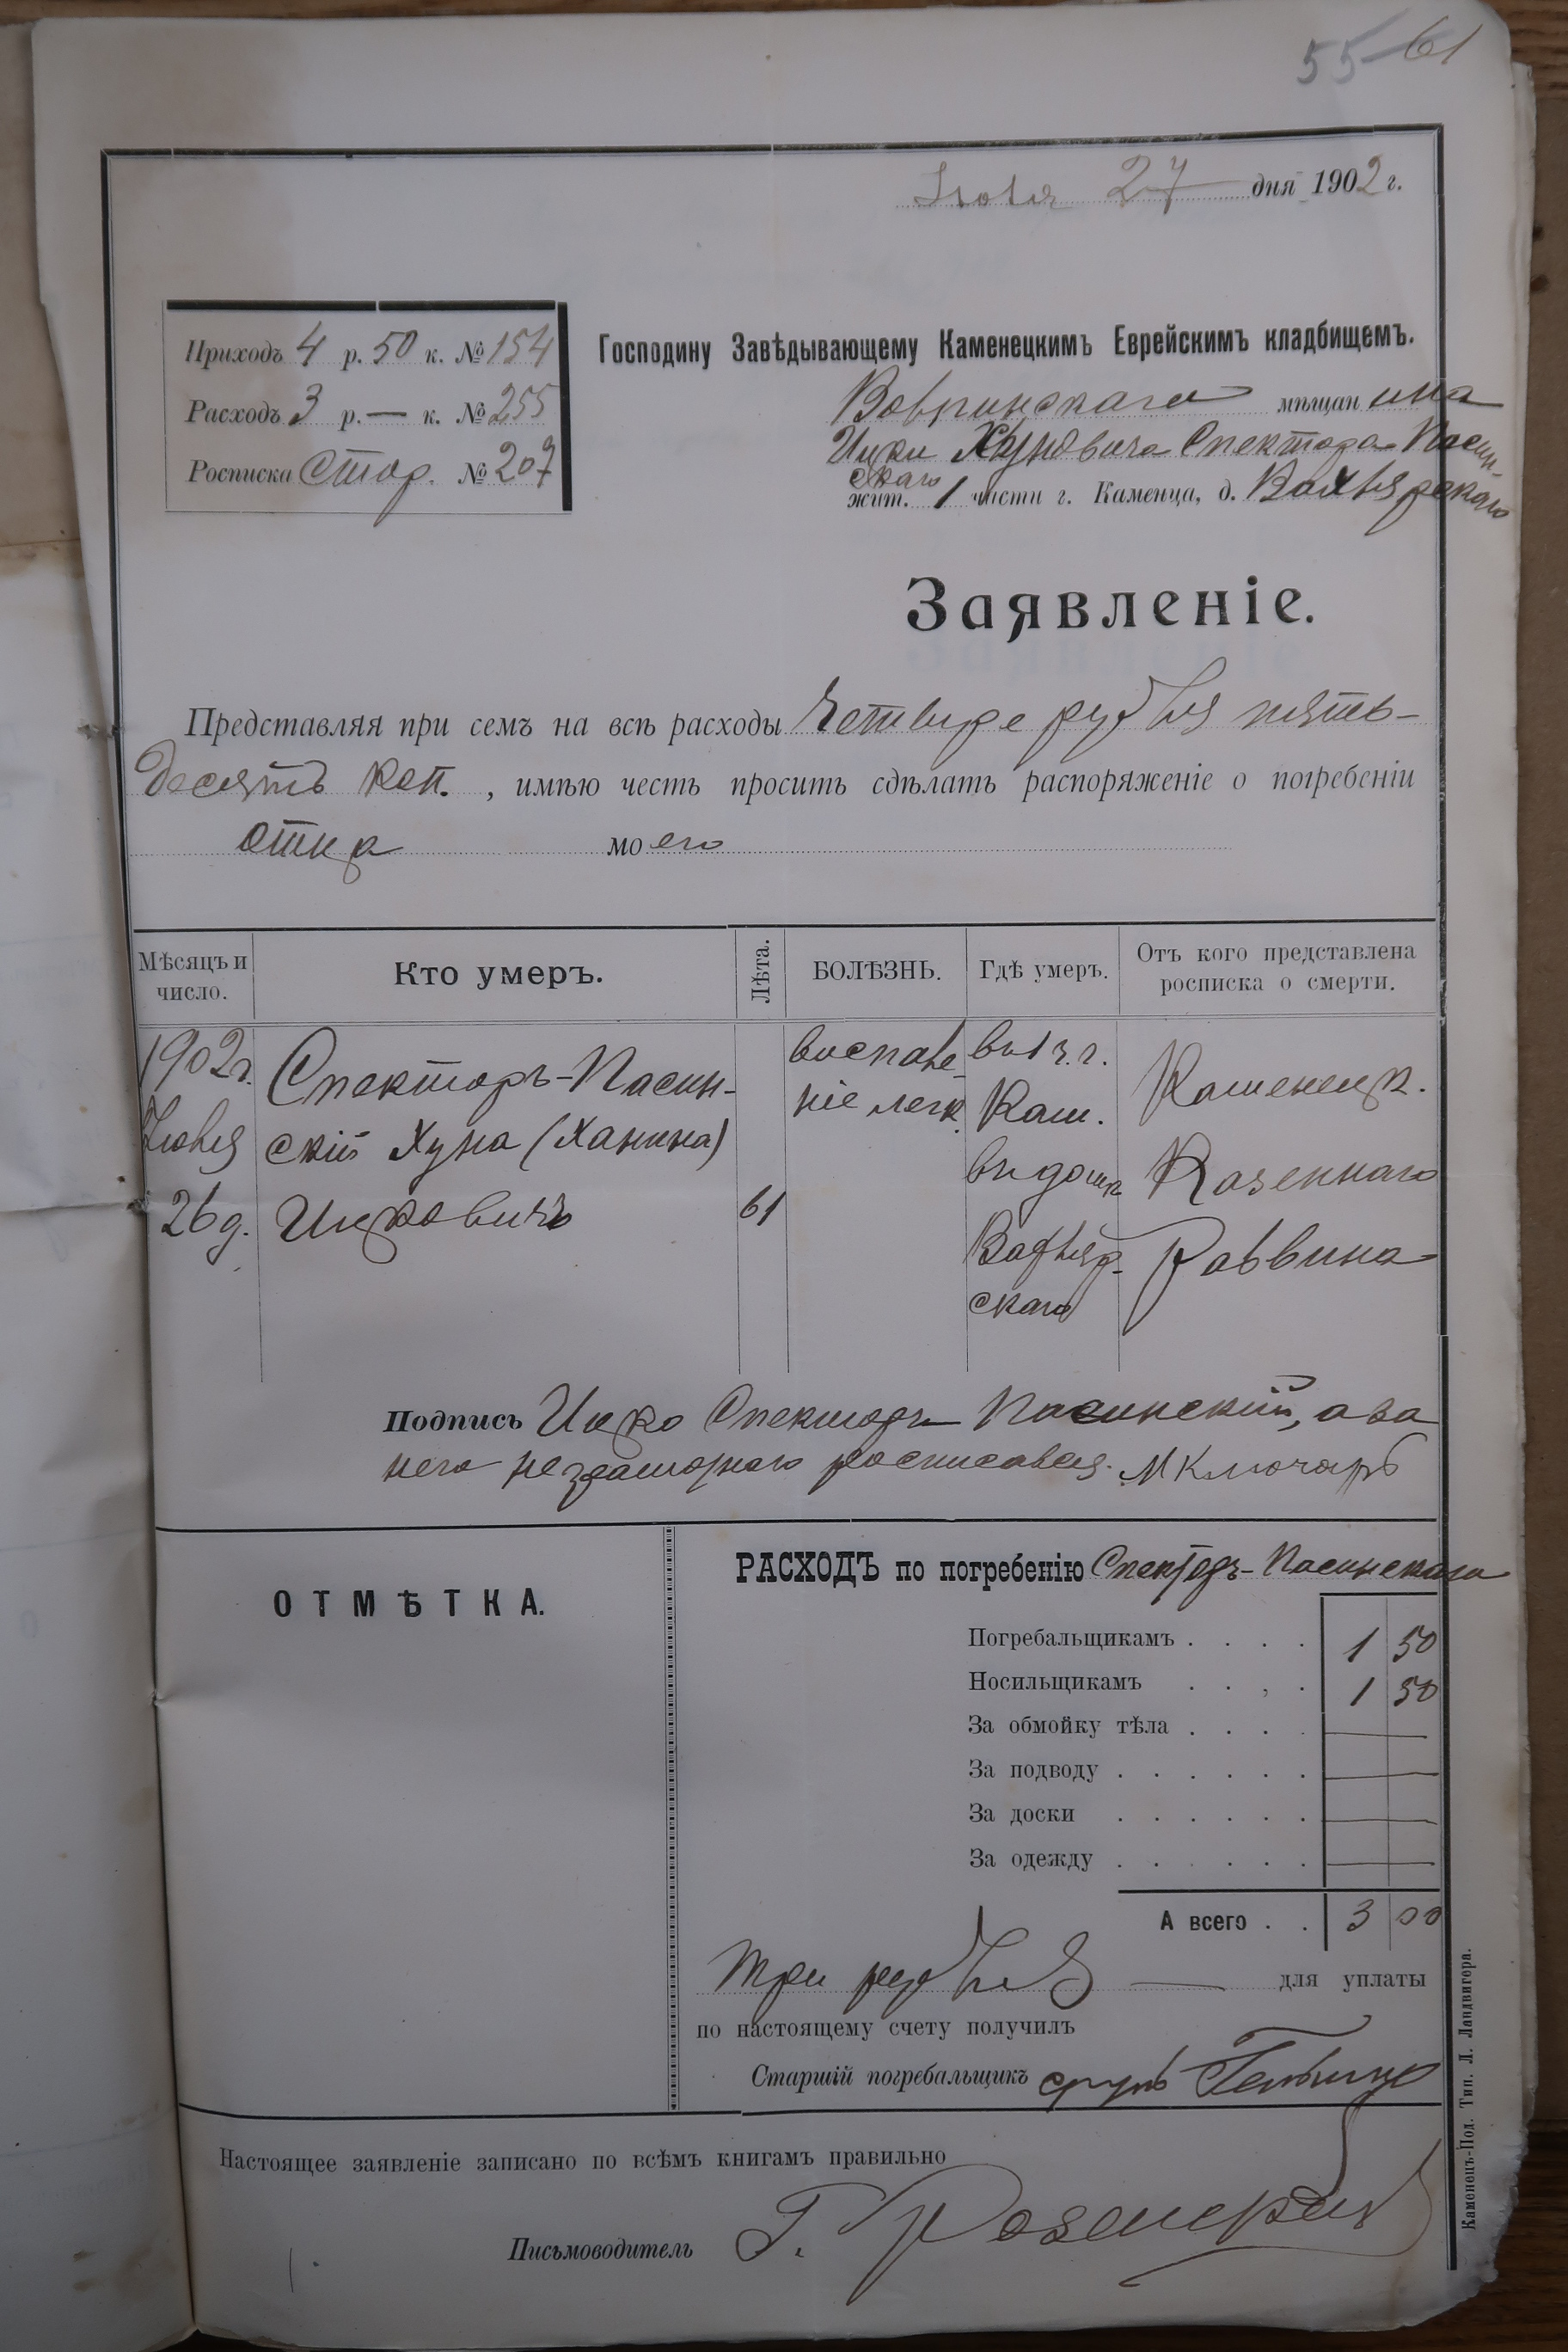 55 61
Іюля 27 дня 1902 г.
Приходъ 4 р. 50 к. № 154
Расходъ 3 р. — к. № 255
Росписка Стор. № 207
Господину Завѣдывающему Каменецкимъ Еврейскимъ кладбищемъ.
мѣщанина
Ицки Хуновича Спектора-Пасин-
скаго
жит. 1 части г. Каменца, д.
Заявленіе.
Представляя при семъ на всѣ расходы Четыре рубля пять-
десятъ коп. , имѣю честь просить сдѣлать распоряженіе о погребеніи
отца моего
Мѣсяцъ и число.
Кто умеръ.
Лѣта.
БОЛѢЗНЬ.
Гдѣ умеръ.
Отъ кого представлена росписка о смерти.
1902 г.
Іюля
26 д.
Спекторъ-Пасин-
скій Хуна (Ханина)
Ицковичъ
61
воспале-
ніе легк.
въ 1 ч. г.
Кам.
въ домѣ
скаго
Каменецк.
Казеннаго
Раввина
Подпись Ицко Спекторъ-Пасинскій, а за
него неграмотнаго росписался М Ключарь
ОТМѢТКА.
РАСХОДЪ по погребенію Спекторъ-Пасинскаго
Погребальщикамъ . . . . 1 50
Носильщикамъ . . , . 1 50
За обмойку тѣла . . . . —
За подводу . . . . . . —
За доски . . . . . . —
За одежду . . . . . . —
А всего . . 3 00
Три рубля — для уплаты
по настоящему счету получилъ
Старшій погребальщикъ
Настоящее заявленіе записано по всѣмъ книгамъ правильно
Письмоводитель Г.
Каменецъ-Под. Тип. Л. Ландвигера.